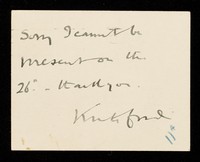 Sorry I cannot be
present on the
26th - thank you.